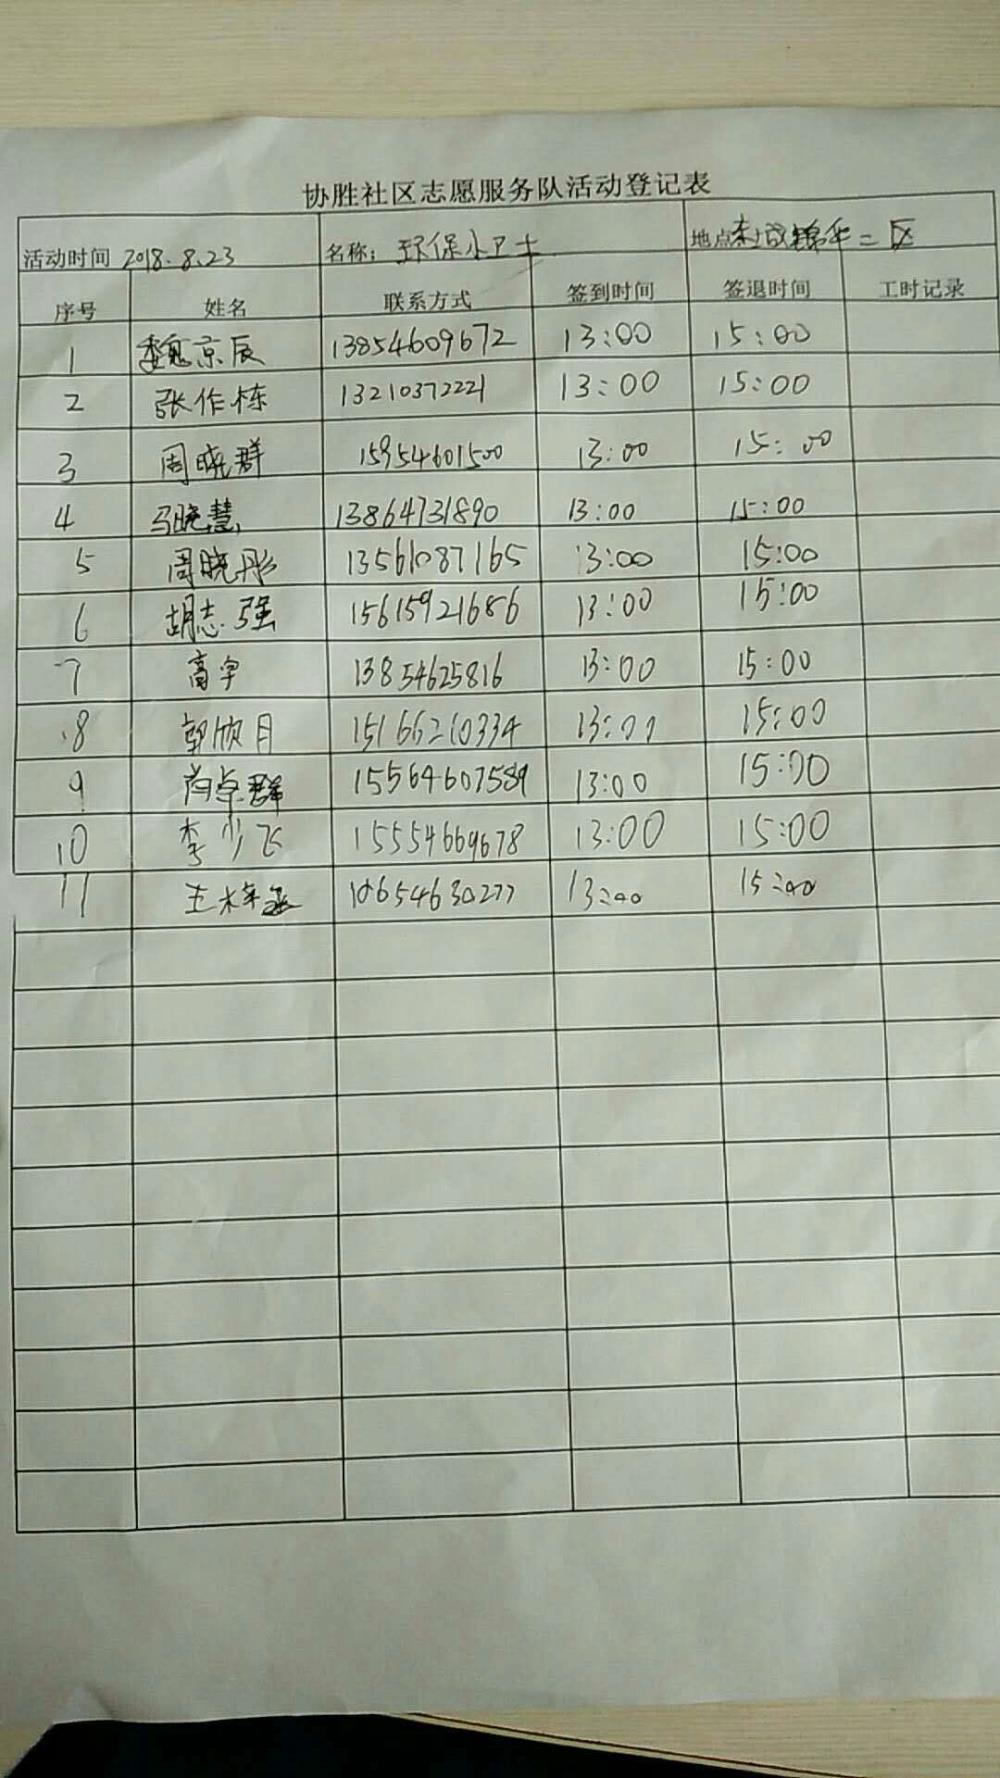 协胜社区志愿服务队活动登记表
活动时间 2018.8.23 名称：环保小卫士 地点 锦华二区
序号 姓名 联系方式 签到时间 签退时间 工时记录
1 魏京辰 13854609672 13:00 15:00
2 张作栋 13210372221 13:00 15:00
3 周晓群 15954601500 13:00 15:00
4 马晓慧 13864731890 13:00 15:00
5 周晓彤 13561087165 13:00 15:00
6 胡志强 15615921686 13:00 15:00
7 高宇 13854625816 13:00 15:00
8 郭欣月 15166210334 13:00 15:00
9 群 15564607589 13:00 15:00
10 李少飞 15554669678 13:00 15:00
11 王 13:00 15:00